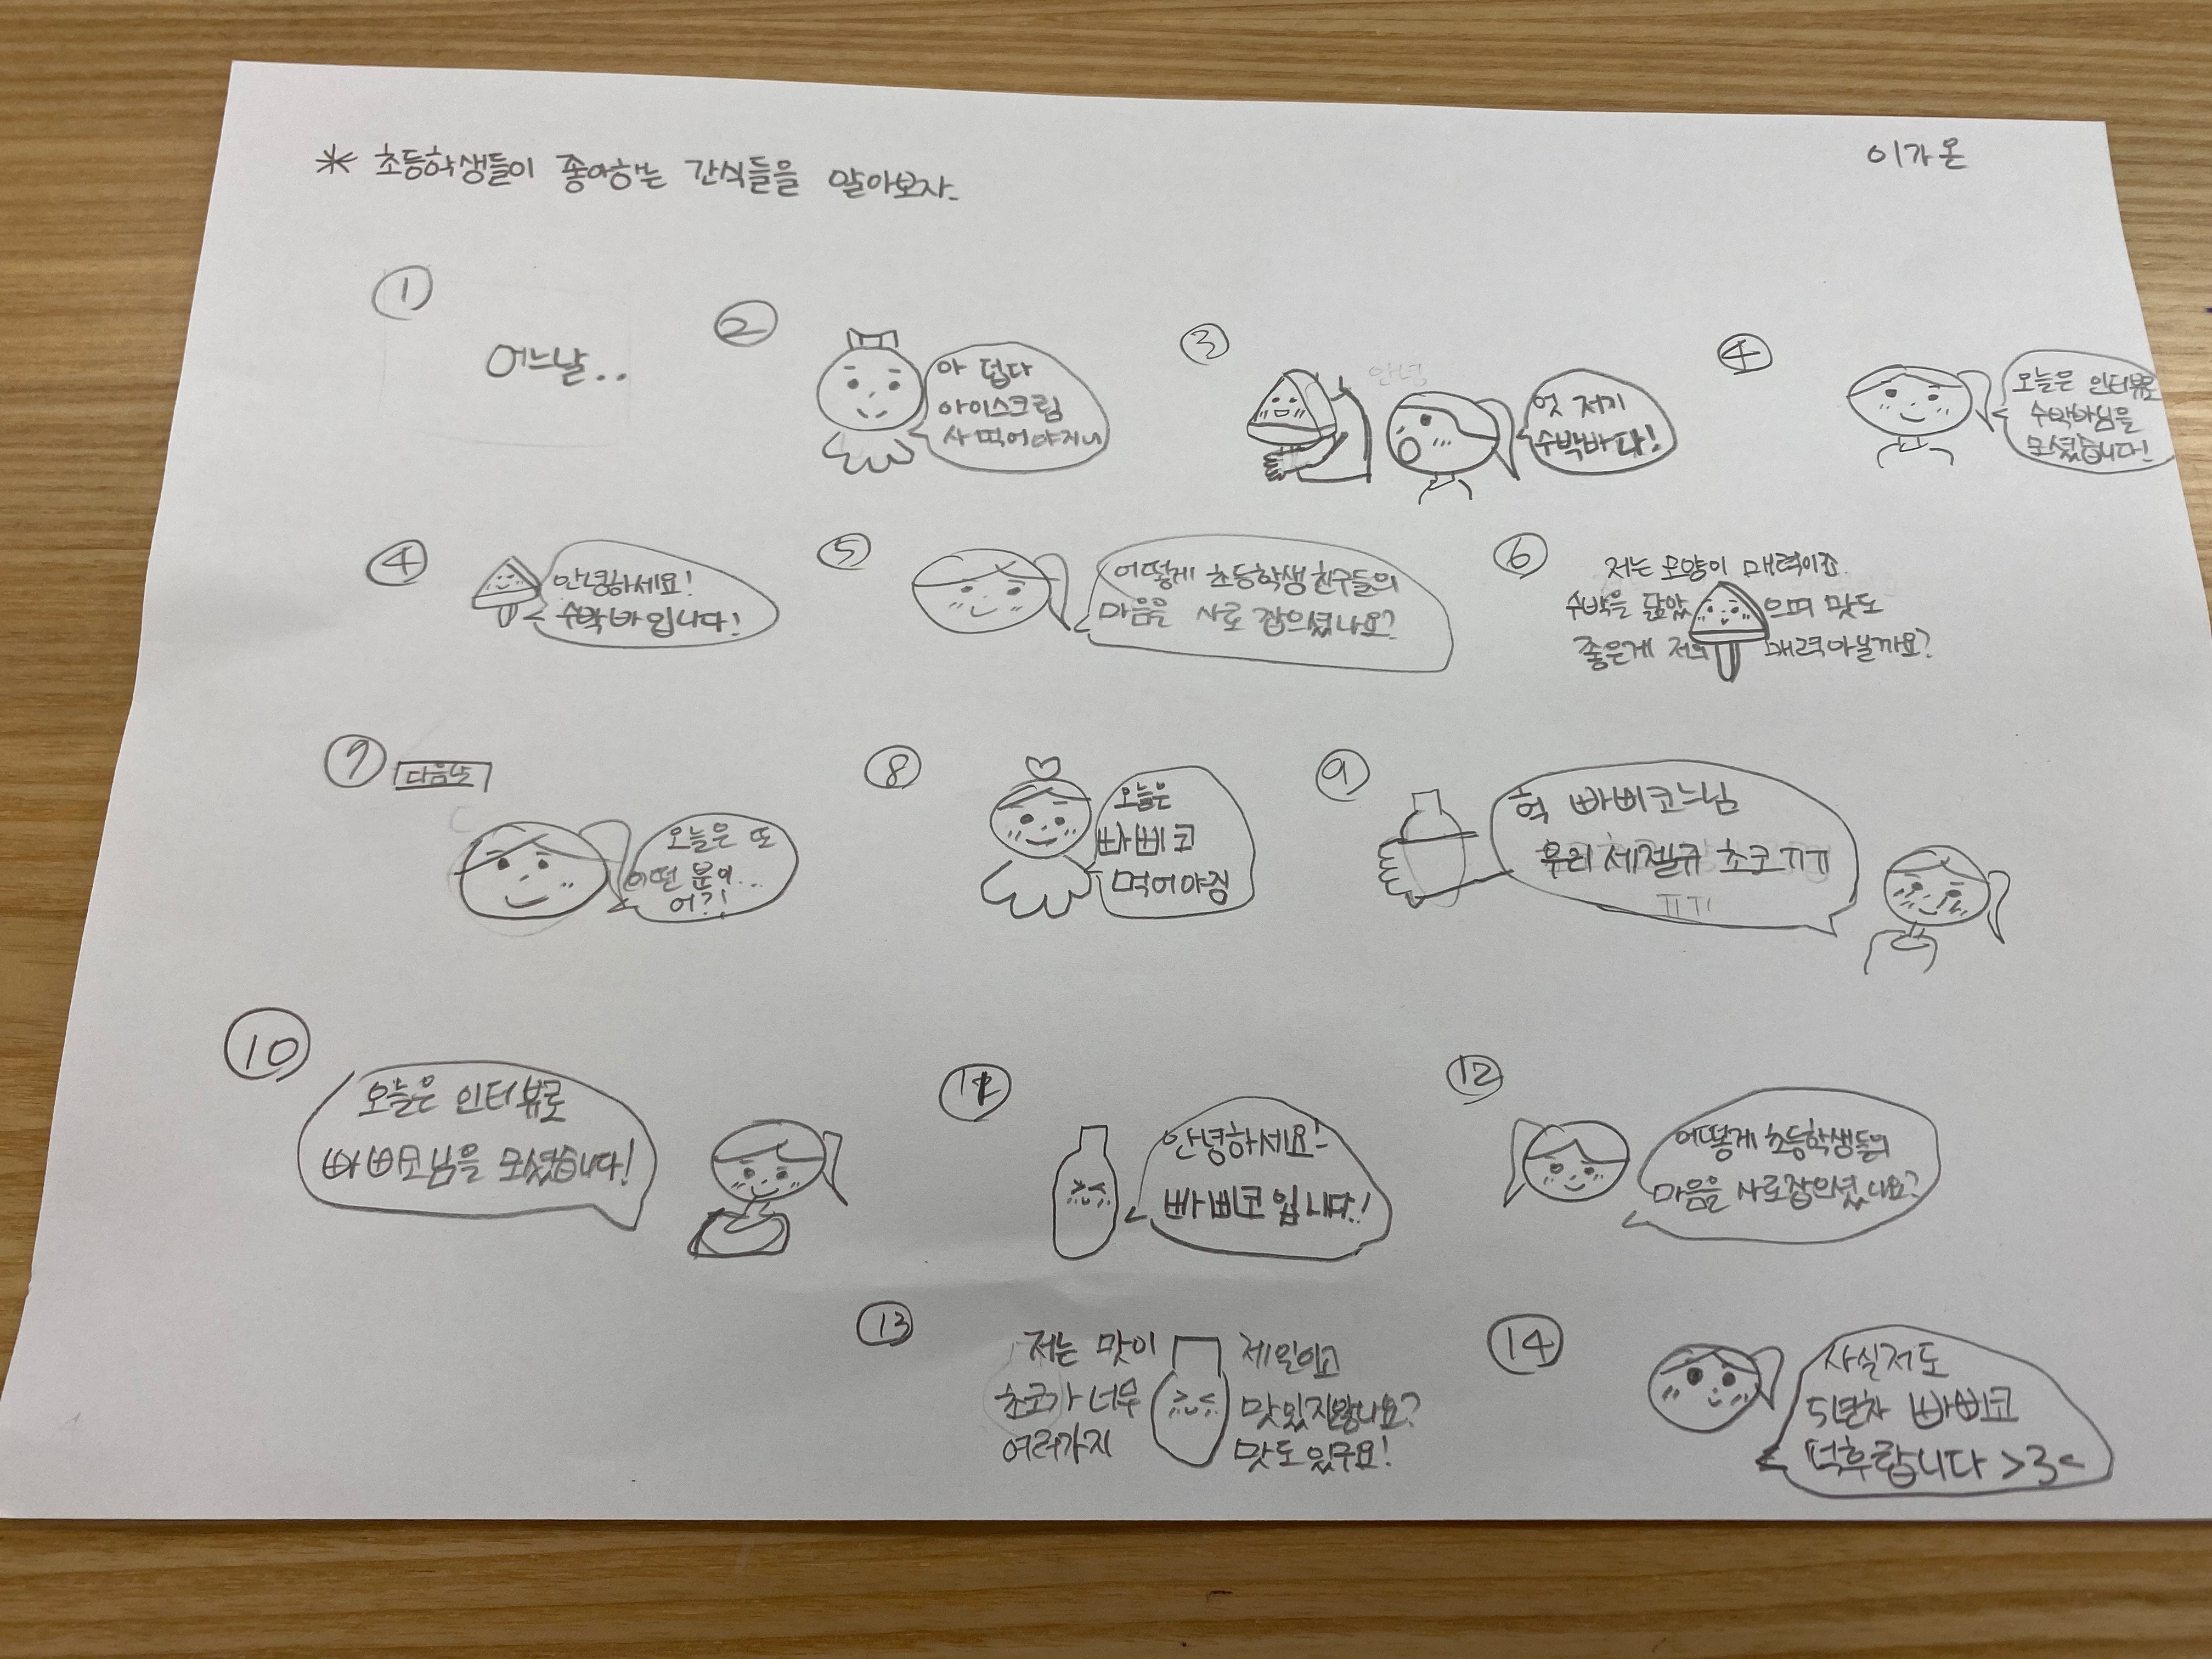 * 초등학생들이 좋아하는 간식들을 알아보자.
이가온
①
어느날..
②
아 덥다
아이스크림
사 먹어야지~
③
안녕
엇 저기
수박바다!
④
오늘은 인터뷰로
수박바님을
모셨습니다!
④
안녕하세요!
수박바입니다!
⑤
어떻게 초등학생친구들의
마음을 사로잡으셨나요?
⑥
저는 모양이 매력이죠.
수박을 닮았으며 맛도
좋은게 저의 매력아닐까요?
⑦ 다음날
오늘은 또
어떤 분이...
어?!
⑧
오늘은
빠삐코
먹어야징
⑨
헉 빠삐코느님
우리 세젤귀 초코ㅠㅠ
ㅠㅠ
⑩
오늘은 인터뷰로
빠삐코님을 모셨습니다!
⑪
안녕하세요!
빠삐코입니다!
⑫
어떻게 초등학생들의
마음을 사로잡으셨나요?
⑬
저는 맛이 제일이고
초코가 너무 맛있지않나요?
여러가지 맛도있구요!
⑭
사실저도
5년차 빠삐코
덕후랍니다 >3<